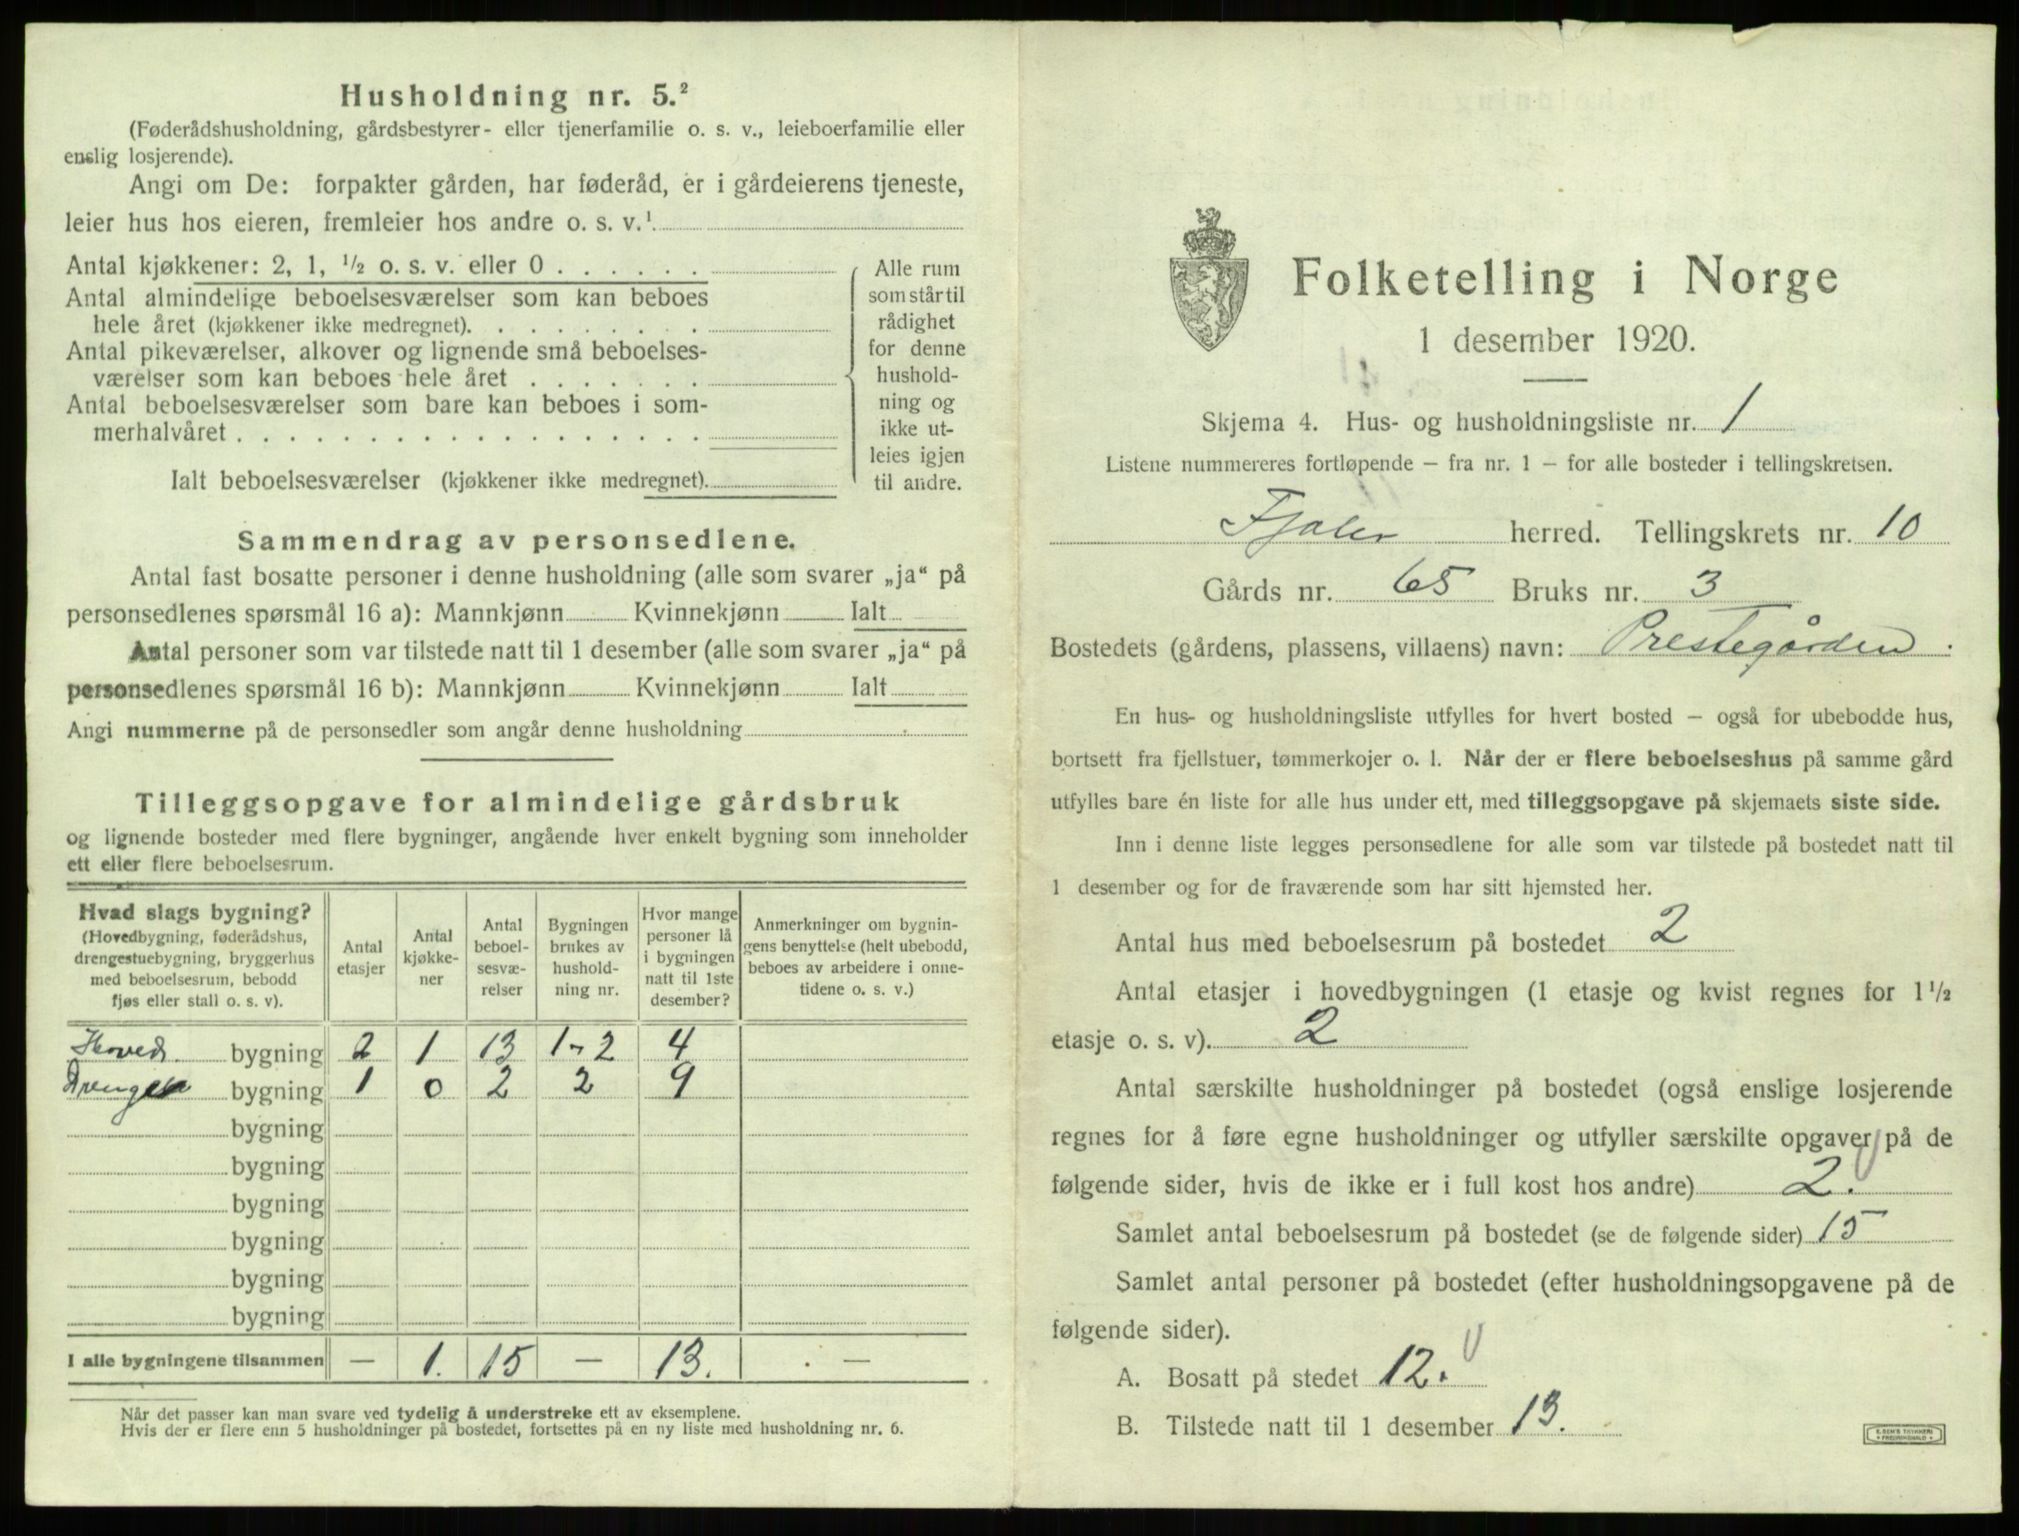 Husholdning nr. 5.²
(Føderådshusholdning, gårdsbestyrer- eller tjenerfamilie o. s. v., leieboerfamilie eller
enslig losjerende).
Angi om De: forpakter gården, har føderåd, er i gårdeierens tjeneste,
leier hus hos eieren, fremleier hos andre o. s. v.¹
Antal kjøkkener: 2, 1, ½ o. s. v. eller 0
Antal almindelige beboelsesværelser som kan beboes
hele året (kjøkkener ikke medregnet).
Antal pikeværelser, alkover og lignende små beboelses-
værelser som kan beboes hele året
Antal beboelsesværelser som bare kan beboes i som-
merhalvåret
Ialt beboelsesværelser (kjøkkener ikke medregnet).
Alle rum
som står til
rådighet
for denne
hushold-
ning og
ikke ut-
leies igjen
til andre.
Sammendrag av personsedlene.
Antal fast bosatte personer i denne husholdning (alle som svarer „ja“ på
personsedlenes spørsmål 16 a): Mannkjønn Kvinnekjønn Ialt
Antal personer som var tilstede natt til 1 desember (alle som svarer „ja“ på
personsedlenes spørsmål 16 b): Mannkjønn Kvinnekjønn Ialt
Angi nummerne på de personsedler som angår denne husholdning
Tilleggsopgave for almindelige gårdsbruk
og lignende bosteder med flere bygninger, angående hver enkelt bygning som inneholder
ett eller flere beboelsesrum.
Hvad slags bygning?
(Hovedbygning, føderådshus,
drengestuebygning, bryggerhus
med beboelsesrum, bebodd
fjøs eller stall o. s. v).
Antal
etasjer
Antal
kjøkke-
ner
Antal
beboel-
sesvæ-
relser
Bygningen
brukes av
hushold-
ning nr.
Hvor mange
personer lå
i bygningen
natt til 1ste
desember?
Anmerkninger om bygnin-
gens benyttelse (helt ubebodd,
beboes av arbeidere i onne-
tidene o. s. v.)
Hoved bygning 2 1 13 1-2 4
bygning 1 0 2 2 9
bygning
bygning
bygning
bygning
bygning
bygning
I alle bygningene tilsammen — 1. 15 — 13. —
Når det passer kan man svare ved tydelig å understreke ett av eksemplene.
Hvis der er flere enn 5 husholdninger på bostedet, fortsettes på en ny liste med husholdning nr. 6.
Folketelling i Norge
1 desember 1920.
Skjema 4. Hus- og husholdningsliste nr. 1
Listene nummereres fortløpende — fra nr. 1 — for alle bosteder i tellingskretsen.
Fjaler herred. Tellingskrets nr. 10
Gårds nr. 65 Bruks nr. 3
Bostedets (gårdens, plassens, villaens) navn: Prestegården.
En hus- og husholdningsliste utfylles for hvert bosted — også for ubebodde hus,
bortsett fra fjellstuer, tømmerkojer o. l. Når der er flere beboelseshus på samme gård
utfylles bare én liste for alle hus under ett, med tilleggsopgave på skjemaets siste side.
Inn i denne liste legges personsedlene for alle som var tilstede på bostedet natt til
1 desember og for de fraværende som har sitt hjemsted her.
Antal hus med beboelsesrum på bostedet 2
Antal etasjer i hovedbygningen (1 etasje og kvist regnes for 1½
etasje o. s. v). 2
Antal særskilte husholdninger på bostedet (også enslige losjerende
regnes for å føre egne husholdninger og utfyller særskilte opgaver på de
følgende sider, hvis de ikke er i full kost hos andre) 2.
Samlet antal beboelsesrum på bostedet (se de følgende sider) 15
Samlet antal personer på bostedet (efter husholdningsopgavene på de
følgende sider).
A. Bosatt på stedet 12.
B. Tilstede natt til 1 desember 13.
E. SEM'S TRYKKERI
FREDRIKSHALD